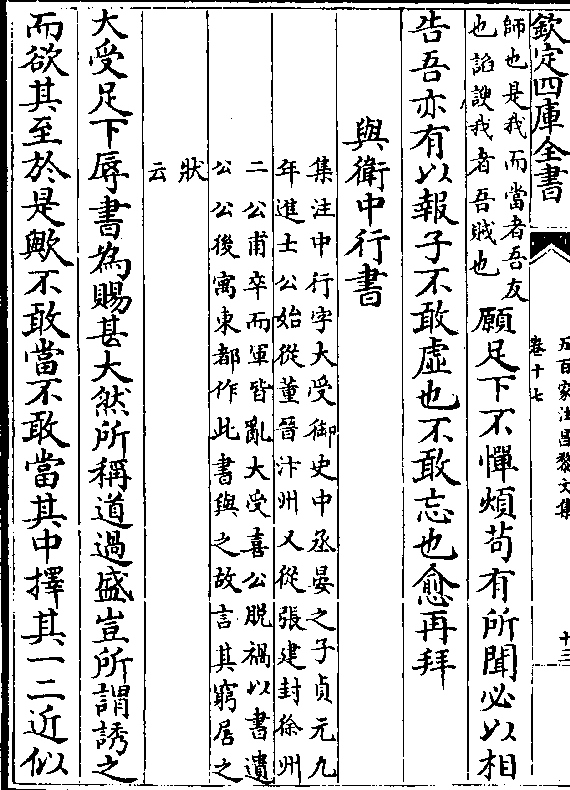 欽定四庫全書
五百家注昌黎文集
卷十七
十三
師也是我而當者吾友
也諂諛我者吾賊也
願足下不憚煩苟有所聞必以相
告吾亦有以報子不敢虛也不敢忘也愈再拜
與衛中行書
集注中行字大受御史中丞晏之子貞元九
年進士公始從董晉汴州又從張建封徐州
二公甫卒而軍皆亂大受喜公脫禍以書遺
公公後寓東都作此書與之故言其窮居之
狀
云
大受足下辱書為賜甚大然所稱道過盛豈所謂誘之
而欲其至於是歟不敢當不敢當其中擇其一二近似